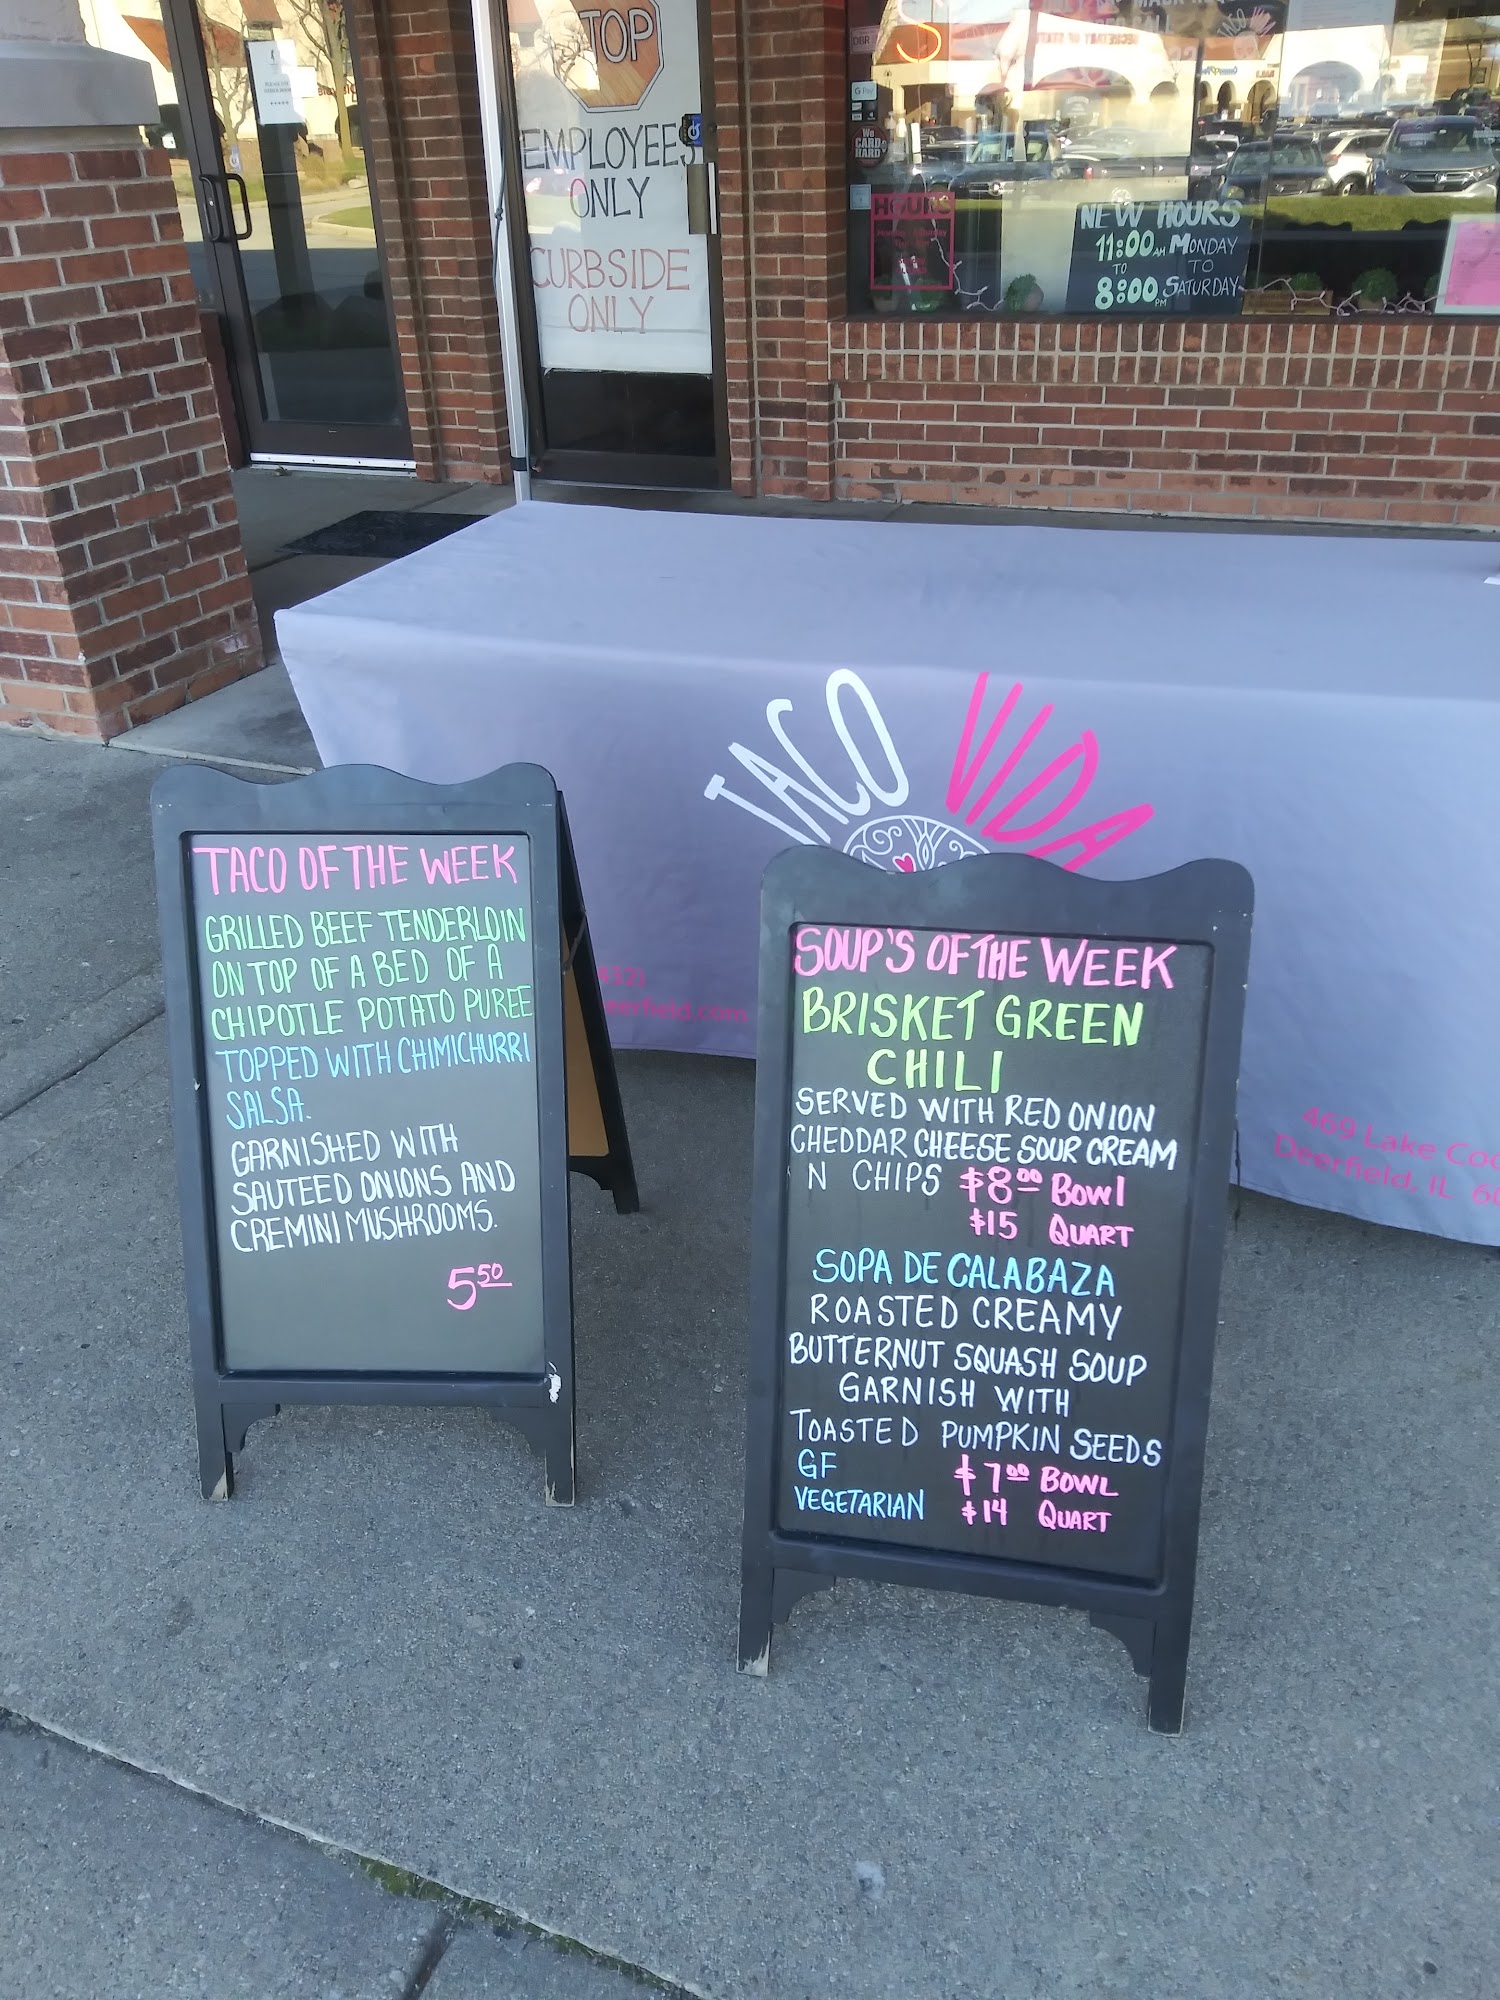 STOP
EMPLOYEES
ONLY
CURBSIDE
ONLY
G Pay
We
CARD
HARD
HOURS
NEW HOURS
11:00 AM MONDAY
TO TO
8:00 PM SATURDAY
TACO VIDA
eerfield.com
469 Lake Coo
Deerfield, IL 60
TACO OF THE WEEK
GRILLED BEEF TENDERLOIN
ON TOP OF A BED OF A
CHIPOTLE POTATO PUREE
TOPPED WITH CHIMICHURRI
SALSA.
GARNISHED WITH
SAUTEED ONIONS AND
CREMINI MUSHROOMS.
5.50
SOUP'S OF THE WEEK
BRISKET GREEN
CHILI
SERVED WITH RED ONION
CHEDDAR CHEESE SOUR CREAM
N CHIPS $8.00 BOWL
$15 QUART
SOPA DE CALABAZA
ROASTED CREAMY
BUTTERNUT SQUASH SOUP
GARNISH WITH
TOASTED PUMPKIN SEEDS
GF $7.00 BOWL
VEGETARIAN $14 QUART